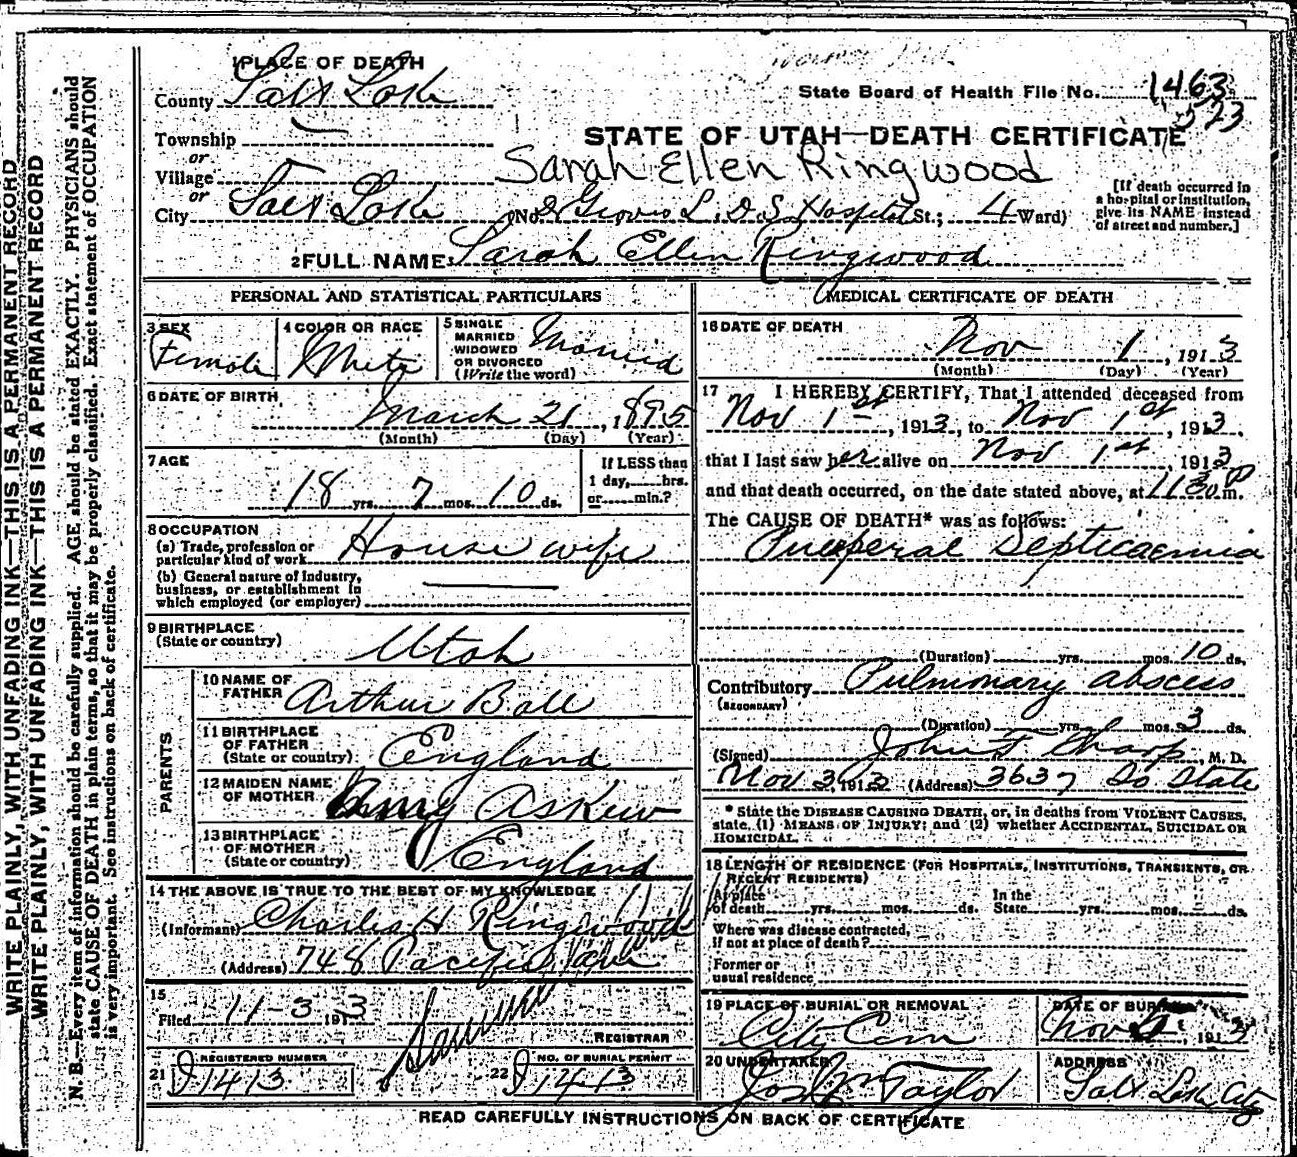 1 PLACE OF DEATH
County Salt Lake
State Board of Health File No. 1463
523
Township
or
STATE OF UTAH—DEATH CERTIFICATE
Sarah Ellen Ringwood
Village
or
City Salt Lake (No. Groves L.D.S. Hospital St.; 4 Ward)
[If death occurred in
a hospital or institution,
give its NAME instead
of street and number.]
2 FULL NAME: Sarah Ellen Ringwood
PERSONAL AND STATISTICAL PARTICULARS
3 SEX
Female
4 COLOR OR RACE
White
5 SINGLE
MARRIED
WIDOWED
OR DIVORCED
(Write the word)
Married
6 DATE OF BIRTH
March 21, 1895
(Month) (Day) (Year)
7 AGE
18 yrs. 7 mos. 10 ds.
If LESS than
1 day, hrs.
or min.?
8 OCCUPATION
(a) Trade, profession or
particular kind of work House wife
(b) General nature of Industry,
business, or establishment in
which employed (or employer)
9 BIRTHPLACE
(State or country)
Utah
PARENTS
10 NAME OF
FATHER Arthur Ball
11 BIRTHPLACE
OF FATHER
(State or country) England
12 MAIDEN NAME
OF MOTHER Amy Askew
13 BIRTHPLACE
OF MOTHER
(State or country) England
14 THE ABOVE IS TRUE TO THE BEST OF MY KNOWLEDGE
(Informant) Charles H Ringwood
(Address) 748 Pacific
15
Filed 11-3 1913
REGISTRAR
21 REGISTERED NUMBER
J1413
22 NO. OF BURIAL PERMIT
J1413
MEDICAL CERTIFICATE OF DEATH
16 DATE OF DEATH
Nov 1, 1913
(Month) (Day) (Year)
17 I HEREBY CERTIFY, That I attended deceased from
Nov 1st, 1913, to Nov 1st, 1913,
that I last saw her alive on Nov 1st, 1913
and that death occurred, on the date stated above, at 1130 P m.
The CAUSE OF DEATH* was as follows:
Puerperal Septicaemia
(Duration) yrs. mos. 10 ds.
Contributory Pulmonary abscess
(SECONDARY)
(Duration) yrs. mos. 3 ds.
(Signed) John F Sharp, M. D.
Nov 3, 1913 (Address) 3637 So State
* State the DISEASE CAUSING DEATH, or, in deaths from VIOLENT CAUSES,
state (1) MEANS OF INJURY; and (2) whether ACCIDENTAL, SUICIDAL OR
HOMICIDAL.
18 LENGTH OF RESIDENCE (FOR HOSPITALS, INSTITUTIONS, TRANSIENTS, OR
RECENT RESIDENTS)
At place
of death yrs. mos. ds.
In the
State yrs. mos. ds.
Where was disease contracted,
if not at place of death?
Former or
usual residence
19 PLACE OF BURIAL OR REMOVAL
City Cem
DATE OF BURIAL
Nov 1913
20 UNDERTAKER
Jos Wm Taylor
ADDRESS
Salt Lake City
READ CAREFULLY INSTRUCTIONS ON BACK OF CERTIFICATE
WRITE PLAINLY, WITH UNFADING INK—THIS IS A PERMANENT RECORD
WRITE PLAINLY, WITH UNFADING INK—THIS IS A PERMANENT RECORD
N. B.—Every item of information should be carefully supplied. AGE should be stated EXACTLY. PHYSICIANS should
state CAUSE OF DEATH in plain terms, so that it may be properly classified. Exact statement of OCCUPATION
is very important. See instructions on back of certificate.